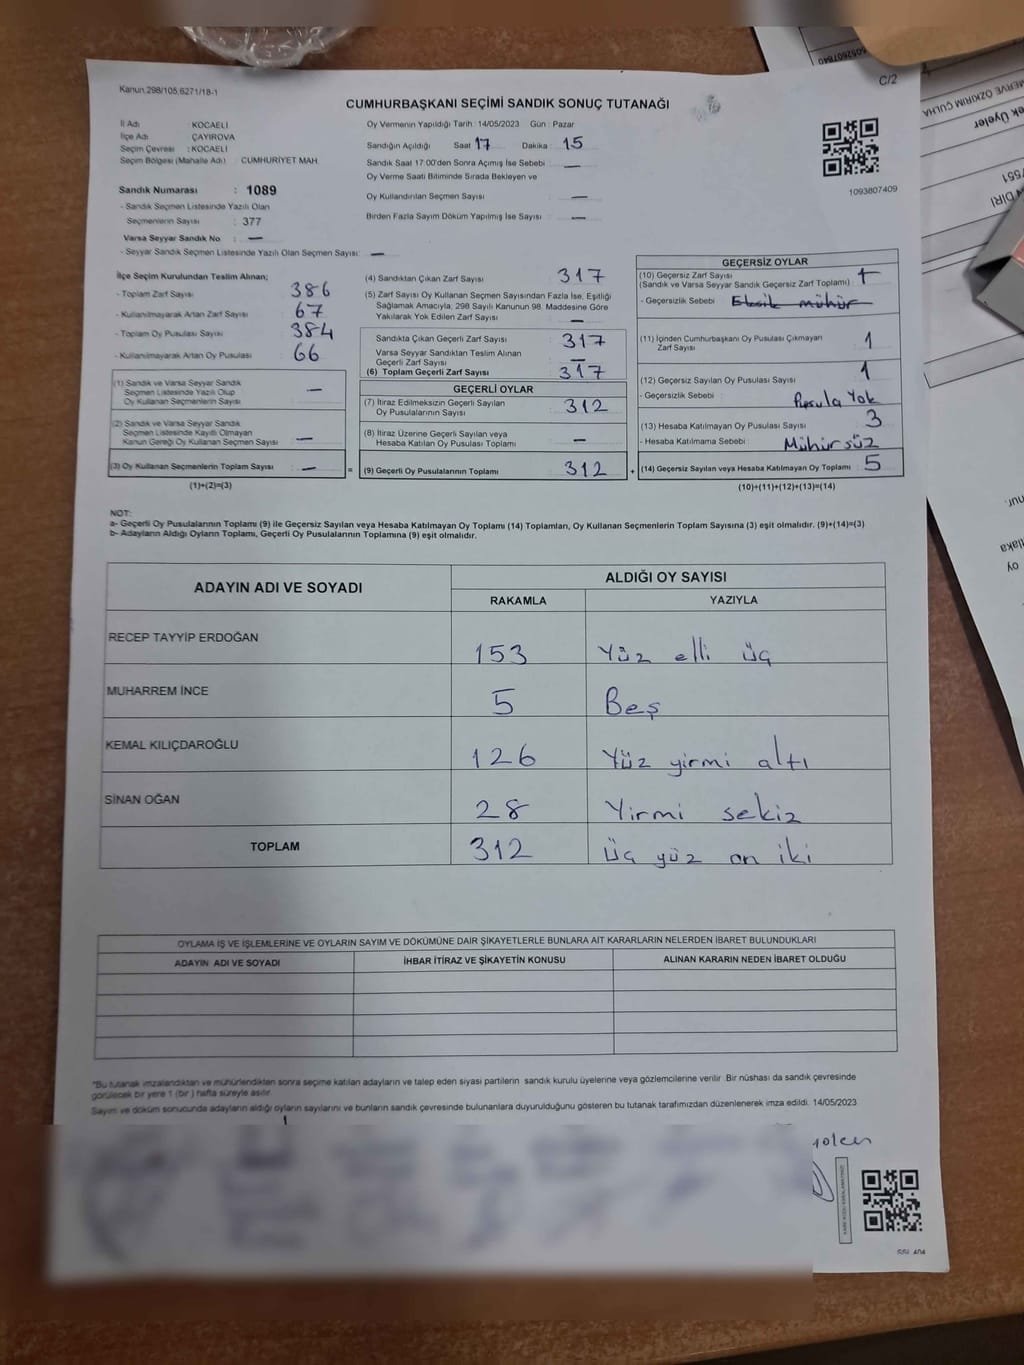 Kanun 298/105,6271/18-1
C/2
CUMHURBAŞKANI SEÇİMİ SANDIK SONUÇ TUTANAĞI
İl Adı : KOCAELİ
İlçe Adı : ÇAYIROVA
Seçim Çevresi : KOCAELİ
Seçim Bölgesi (Mahalle Adı) CUMHURİYET MAH.
Sandık Numarası : 1089
- Sandık Seçmen Listesinde Yazılı Olan
Seçmenlerin Sayısı : 377
Varsa Seyyar Sandık No : —
- Seyyar Sandık Seçmen Listesinde Yazılı Olan Seçmen Sayısı: —
Oy Vermenin Yapıldığı Tarih : 14/05/2023 Gün : Pazar
Sandığın Açıldığı Saat 17 Dakika 15
Sandık Saat 17:00'den Sonra Açımış İse Sebebi —
Oy Verme Saati Bitiminde Sırada Bekleyen ve
Oy Kullandırılan Seçmen Sayısı —
Birden Fazla Sayım Döküm Yapılmış İse Sayısı —
1093807409
İlçe Seçim Kurulundan Teslim Alınan;
- Toplam Zarf Sayısı 386
- Kullanılmayarak Artan Zarf Sayısı 67
- Toplam Oy Pusulası Sayısı 384
- Kullanılmayarak Artan Oy Pusulası 66
(1) Sandık ve Varsa Seyyar Sandık
Seçmen Listesinde Yazılı Olup
Oy Kullanan Seçmenlerin Sayısı —
(2) Sandık ve Varsa Seyyar Sandık
Seçmen Listesinde Kayıtlı Olmayan
Kanun Gereği Oy Kullanan Seçmen Sayısı —
(3) Oy Kullanan Seçmenlerin Toplam Sayısı —
(1)+(2)=(3)
(4) Sandıktan Çıkan Zarf Sayısı 317
(5) Zarf Sayısı Oy Kullanan Seçmen Sayısından Fazla İse, Eşitliği
Sağlamak Amacıyla, 298 Sayılı Kanunun 98. Maddesine Göre
Yakılarak Yok Edilen Zarf Sayısı —
Sandıkta Çıkan Geçerli Zarf Sayısı 317
Varsa Seyyar Sandıktan Teslim Alınan
Geçerli Zarf Sayısı —
(6) Toplam Geçerli Zarf Sayısı 317
GEÇERLİ OYLAR
(7) İtiraz Edilmeksizin Geçerli Sayılan
Oy Pusulalarının Sayısı 312
(8) İtiraz Üzerine Geçerli Sayılan veya
Hesaba Katılan Oy Pusulası Toplamı —
= (9) Geçerli Oy Pusulalarının Toplamı 312
GEÇERSİZ OYLAR
(10) Geçersiz Zarf Sayısı
(Sandık ve Varsa Seyyar Sandık Geçersiz Zarf Toplamı) 1
- Geçersizlik Sebebi Eksik mühür
(11) İçinden Cumhurbaşkanı Oy Pusulası Çıkmayan
Zarf Sayısı 1
(12) Geçersiz Sayılan Oy Pusulası Sayısı 1
- Geçersizlik Sebebi : Pusula Yok
(13) Hesaba Katılmayan Oy Pusulası Sayısı 3
- Hesaba Katılmama Sebebi Mühürsüz
+ (14) Geçersiz Sayılan veya Hesaba Katılmayan Oy Toplamı : 5
(10)+(11)+(12)+(13)=(14)
NOT:
a- Geçerli Oy Pusulalarının Toplamı (9) ile Geçersiz Sayılan veya Hesaba Katılmayan Oy Toplamı (14) Toplamları, Oy Kullanan Seçmenlerin Toplam Sayısına (3) eşit olmalıdır. (9)+(14)=(3)
b- Adayların Aldığı Oyların Toplamı, Geçerli Oy Pusulalarının Toplamına (9) eşit olmalıdır.
ADAYIN ADI VE SOYADI ALDIĞI OY SAYISI
RAKAMLA YAZIYLA
RECEP TAYYİP ERDOĞAN 153 Yüz elli üç
MUHARREM İNCE 5 Beş
KEMAL KILIÇDAROĞLU 126 Yüz yirmi altı
SİNAN OĞAN 28 Yirmi sekiz
TOPLAM 312 üç yüz on iki
OYLAMA İŞ VE İŞLEMLERİNE VE OYLARIN SAYIM VE DÖKÜMÜNE DAİR ŞİKAYETLERLE BUNLARA AİT KARARLARIN NELERDEN İBARET BULUNDUKLARI
ADAYIN ADI VE SOYADI İHBAR İTİRAZ VE ŞİKAYETİN KONUSU ALINAN KARARIN NEDEN İBARET OLDUĞU
"Bu tutanak imzalandıktan ve mühürlendikten sonra seçime katılan adayların ve talep eden siyasi partilerin sandık kurulu üyelerine veya gözlemcilerine verilir. Bir nüshası da sandık çevresinde
görülecek bir yere 1 (bir ) hafta süreyle asılır.
Sayım ve döküm sonucunda adayların aldığı oyların sayılarını ve bunların sandık çevresinde bulunanlara duyurulduğunu gösteren bu tutanak tarafımızdan düzenlenerek imza edildi. 14/05/2023